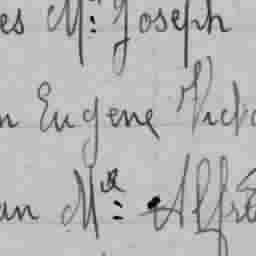 es M.: Joseph
n Eugene Vict
an Mª: Alfre